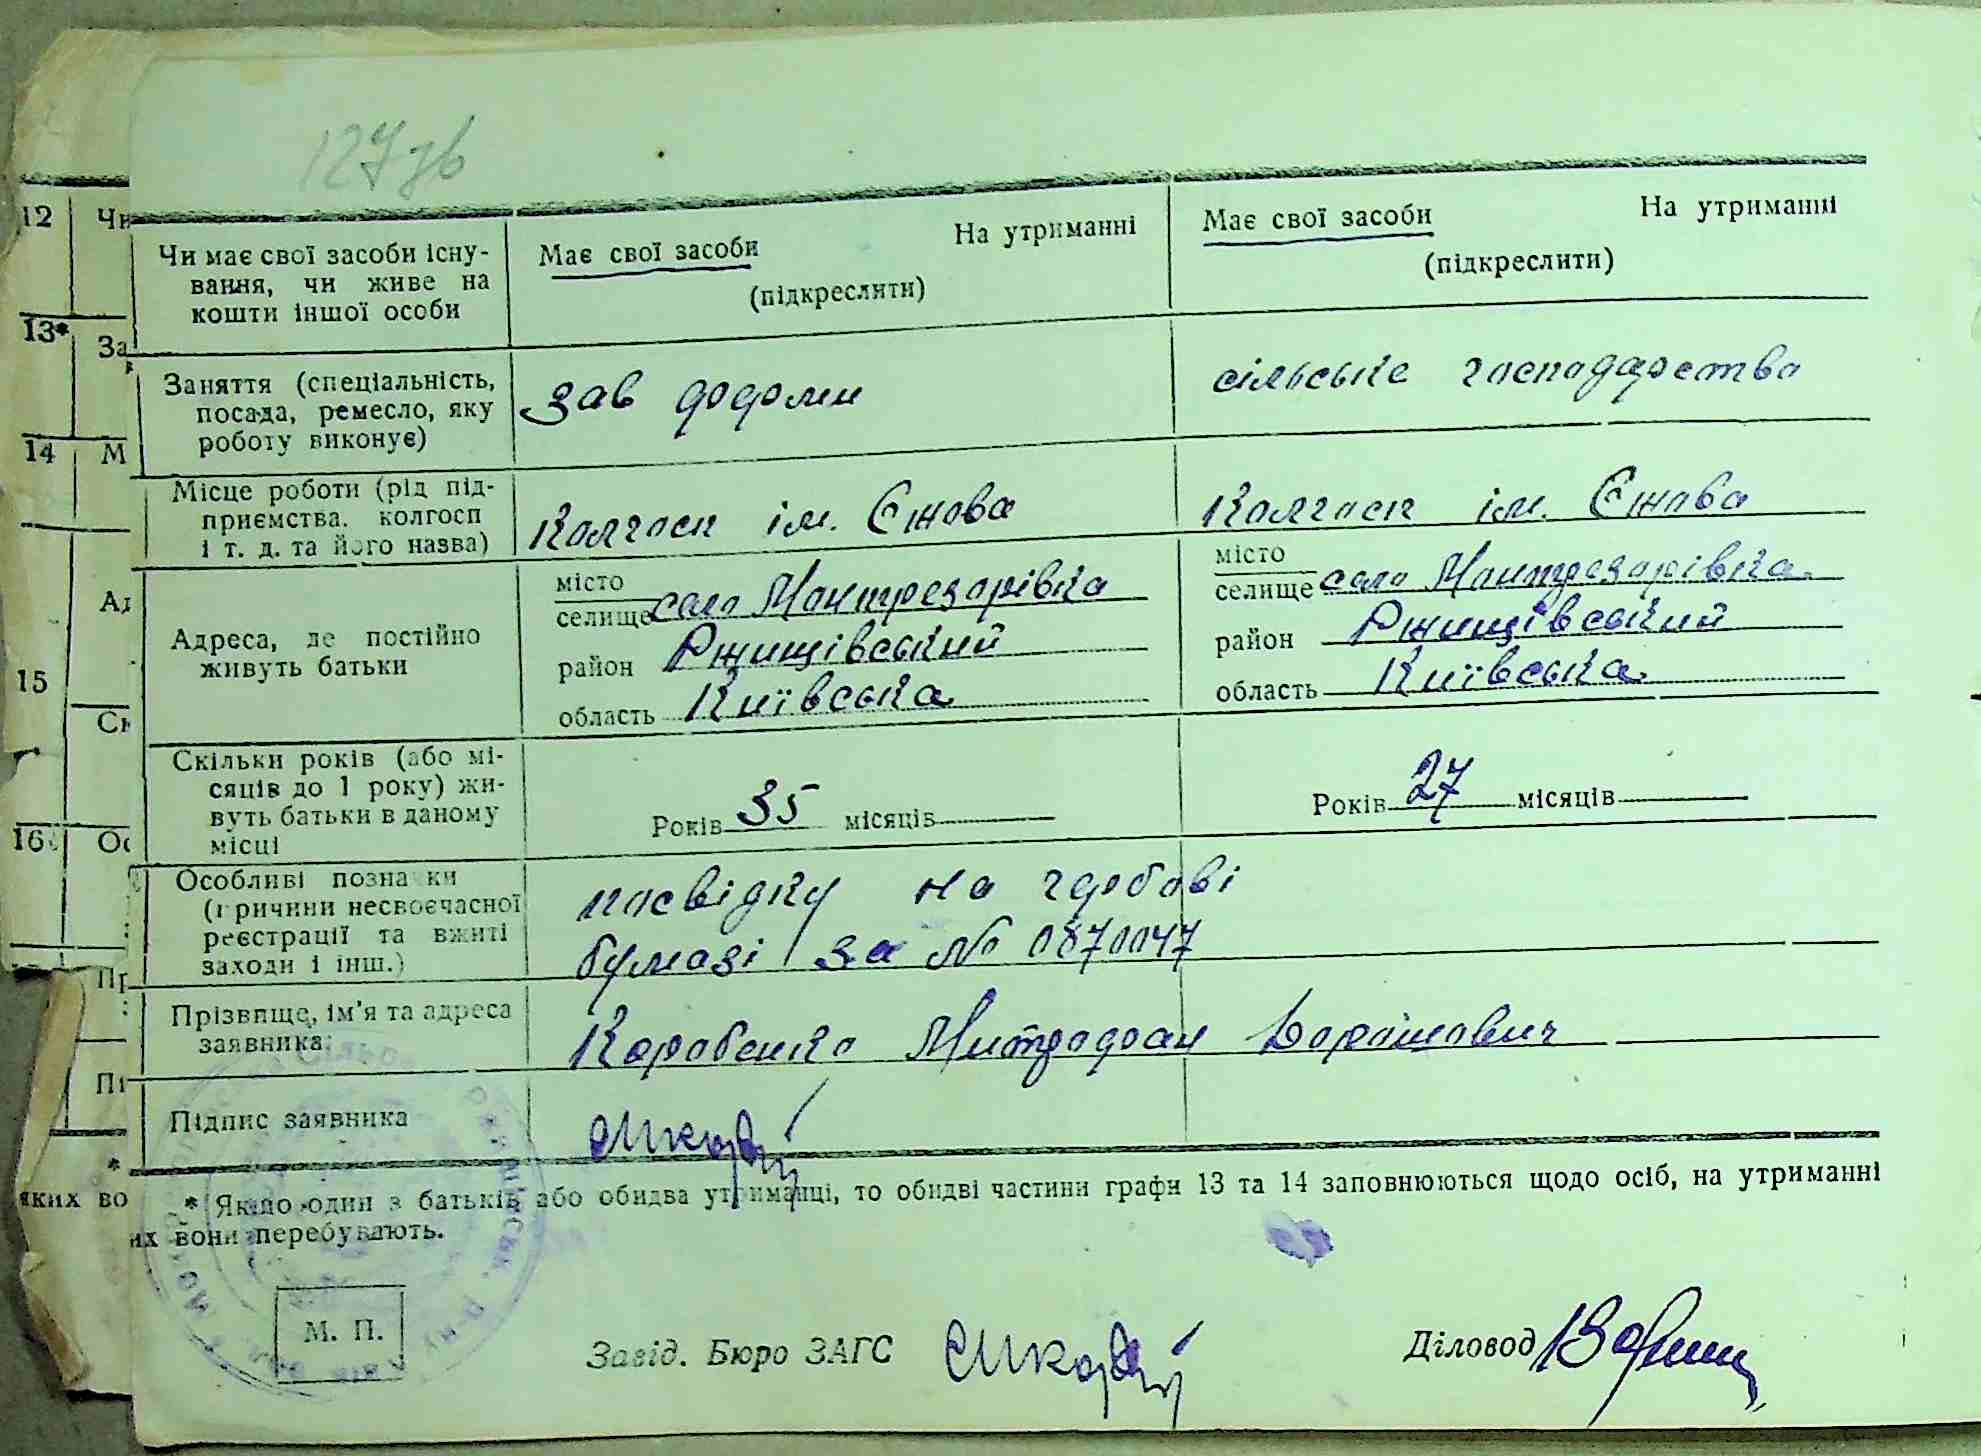 127 зв
12
Чи має свої засоби існу-
вання, чи живе на
кошти іншої особи
Має свої засоби На утриманні
(підкреслити)
Має свої засоби На утриманні
(підкреслити)
13*
За
Заняття (спеціальність,
посада, ремесло, яку
роботу виконує)
зав
сільське господарства
14
М
Місце роботи (рід під-
приємства, колгосп
і т. д. та його назва)
Колгосп ім. Єжова
Колгосп ім. Єжова
Ад
Адреса, де постійно
живуть батьки
місто
селище село Монтрезорівка
район Ржищівський
область Київська
місто
селище село Монтрезорівка
район Ржищівський
область Київська
15
Ск
Скільки років (або мі-
сяців до 1 року) жи-
вуть батьки в даному
місці
Років 35 місяців
Років 27 місяців
16
Ос
Особливі познаки
(причини несвоєчасної
реєстрації та вжиті
заходи і інш.)
посвідку на гербові
бумазі за № 0870047
Пр
Прізвище, ім'я та адреса
заявника
Коробенко Митрофан
Пі
Підпис заявника
*
яких во
* Якщо один з батьків або обидва утриманці, то обидві частини графи 13 та 14 заповнюються щодо осіб, на утриманні
их вони перебувають.
М. П.
Завід. Бюро ЗАГС
Діловод